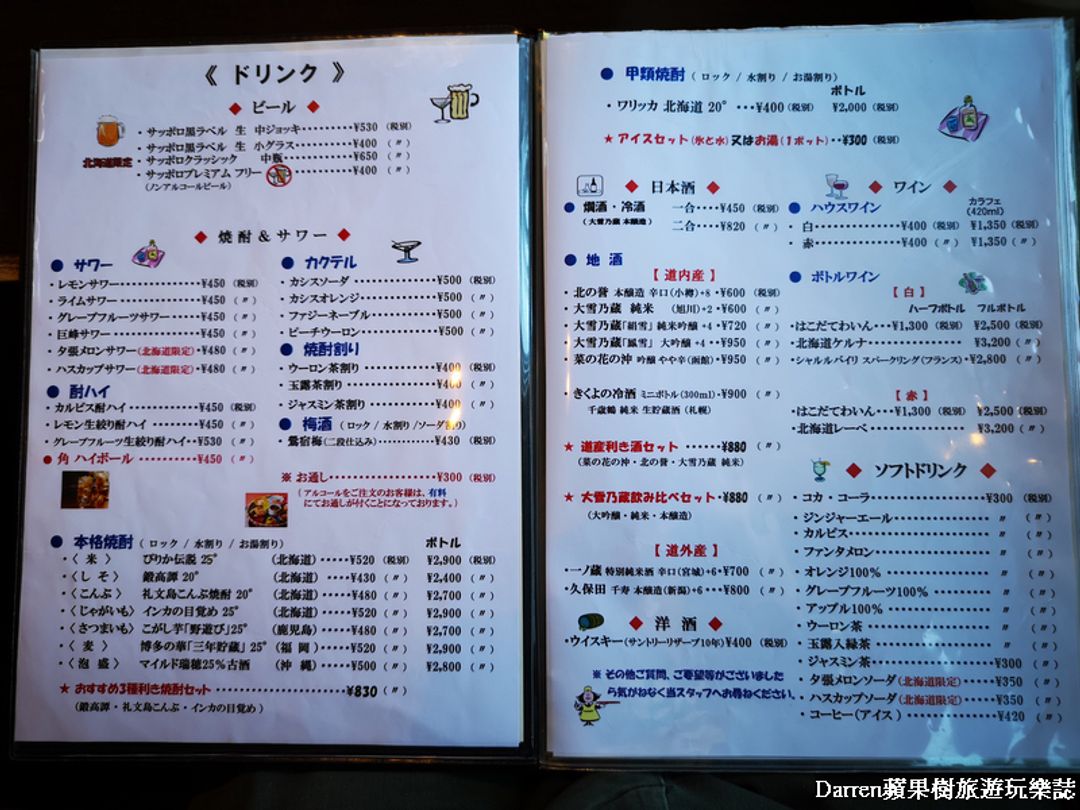 《 ドリンク 》
◆ ビール ◆
・サッポロ黒ラベル 生 中ジョッキ・・・・・・・・・¥530 (税別)
・サッポロ黒ラベル 生 小グラス・・・・・・・・・・¥400 (〃)
北海道限定 ・サッポロクラシック 中瓶・・・・・・・・・・¥650 (〃)
・サッポロプレミアム フリー ・・・・・・・・・・¥400 (〃)
(ノンアルコールビール)
◆ 焼酎＆サワー ◆
● サワー
・レモンサワー・・・・・・・・・・・・¥450 (税別)
・ライムサワー・・・・・・・・・・・・¥450 (〃)
・グレープフルーツサワー・・・・・¥450 (〃)
・巨峰サワー・・・・・・・・・・・・¥450 (〃)
・夕張メロンサワー(北海道限定)・¥480 (〃)
・ハスカップサワー(北海道限定)・¥480 (〃)
● 酎ハイ
・カルピス酎ハイ・・・・・・・・・・¥450 (税別)
・レモン生絞り酎ハイ ・・・・・・・¥450 (〃)
・グレープフルーツ生絞り酎ハイ・・¥530 (〃)
● 角 ハイボール ・・・・・・・・・・¥450 (〃)
● カクテル
・カシスソーダ ・・・・・・・・・・・・¥500 (税別)
・カシスオレンジ・・・・・・・・・・・¥500 (〃)
・ファジーネーブル・・・・・・・・・・¥500 (〃)
・ピーチウーロン・・・・・・・・・・・¥500 (〃)
● 焼酎割り
・ウーロン茶割り・・・・・・・・・・・¥400 (税別)
・玉露茶割り・・・・・・・・・・・・・¥400 (〃)
・ジャスミン茶割り・・・・・・・・・・¥400 (〃)
● 梅酒 (ロック / 水割り / ソーダ割り)
・鶯宿梅(二段仕込み)・・・・・・・・¥430 (税別)
※ お通し・・・・・・・・・・・・・・・¥300 (税別)
(アルコールをご注文のお客様は、有料
にてお通しが付くことになっております。)
● 本格焼酎 ( ロック / 水割り / お湯割り) ボトル
・〈 米 〉 ぴりか伝説 25° (北海道)・・・・・¥520 (税別) ¥2,900 (税別)
・〈しそ〉 鍛高譚 20° (北海道) ・・・・¥430 (〃) ¥2,400 (〃)
・〈こんぶ〉 礼文島こんぶ焼酎 20° (北海道)・・・・・¥480 (〃) ¥2,700 (〃)
・〈じゃがいも〉 インカの目覚め 25° (北海道)・・・・・¥520 (〃) ¥2,900 (〃)
・〈さつまいも〉 こがし芋「野遊び」25° (鹿児島)・・・・・¥480 (〃) ¥2,700 (〃)
・〈 麦 〉 博多の華「三年貯蔵」 25° (福 岡)・・・・・¥520 (〃) ¥2,900 (〃)
・〈泡 盛〉 マイルド瑞穂25％古酒 (沖 縄)・・・・・¥500 (〃) ¥2,800 (〃)
★ おすすめ3種利き焼酎セット ・・・・・・・・・・・・・・・¥830 (〃)
(鍛高譚・礼文島こんぶ・インカの目覚め )
● 甲類焼酎 ( ロック / 水割り / お湯割り)
ボトル
・ワリッカ 北海道 20° ・・・¥400(税別) ¥2,000 (税別)
★アイスセット(氷と水)又はお湯(1ポット)・・¥300(税別)
◆ 日本酒 ◆
● 燗酒・冷酒 一合・・・・¥450 (税別)
(大雪乃蔵 本醸造) 二合・・・・¥820 (〃)
● 地 酒
【 道内産 】
・北の誉 本醸造 辛口(小樽)+8 ・¥600 (税別)
・大雪乃蔵 純米 (旭川)+2 ・¥600 (〃)
・大雪乃蔵「絹雪」純米吟醸 +4 ・¥720 (〃)
・大雪乃蔵「鳳雪」 大吟醸 +4 ・・¥950 (〃)
・菜の花の沖 吟醸 やや辛(函館)・¥950 (〃)
・きくよの冷酒 ミニボトル(300ml)・¥900 (〃)
千歳鶴 純米 生貯蔵酒 (札幌)
★ 道産利き酒セット ・・・・・・¥880 (〃)
(菜の花の沖・北の誉・大雪乃蔵 純米)
★ 大雪乃蔵飲み比べセット・¥880 (〃)
(大吟醸・純米・本醸造)
【 道外産 】
・一ノ蔵 特別純米酒 辛口(宮城)+6・¥700 (〃)
・久保田 千寿 本醸造(新潟)+6・・・¥800 (〃)
◆ 洋 酒 ◆
・ウイスキー(サントリーリザーブ10年)¥400 (税別)
※ その他ご質問、ご要望等がございました
ら気がねなく当スタッフへお尋ねください。
◆ ワイン ◆
● ハウスワイン カラフェ
(420ml)
・ 白・・・・・・・・・・・¥400 (税別) ¥1,350 (税別)
・ 赤・・・・・・・・・・・¥400 (〃) ¥1,350 (〃)
● ボトルワイン
【 白 】
ハーフボトル フルボトル
・はこだてわいん・・・¥1,300 (税別) ¥2,500 (税別)
・北海道ケルナ・・・・・・・・・・・・・ ¥3,200 (〃)
・シャルルバイリ スパークリング(フランス)・¥2,800 (〃)
【 赤 】
・はこだてわいん・・・¥1,300 (税別) ¥2,500 (税別)
・北海道レーベ・・・・・・・・・・・・・ ¥3,200 (〃)
◆ ソフトドリンク ◆
・コカ・コーラ・・・・・・・・・・・・・・¥300 (税別)
・ジンジャーエール・・・・・・・・・・・・ 〃 (〃)
・カルピス・・・・・・・・・・・・・・・・ 〃 (〃)
・ファンタメロン・・・・・・・・・・・・・ 〃 (〃)
・オレンジ100%・・・・・・・・・・・・・ 〃 (〃)
・グレープフルーツ100% ・・・・・・・・・ 〃 (〃)
・アップル100%・・・・・・・・・・・・・ 〃 (〃)
・ウーロン茶・・・・・・・・・・・・・・・ 〃 (〃)
・玉露入緑茶・・・・・・・・・・・・・・・ 〃 (〃)
・ジャスミン茶・・・・・・・・・・・・・・¥300 (〃)
・夕張メロンソーダ(北海道限定)・・・・・・¥350 (〃)
・ハスカップソーダ(北海道限定)・・・・・・¥350 (〃)
・コーヒー(アイス)・・・・・・・・・・・・¥420 (〃)
Darren蘋果樹旅遊玩樂誌